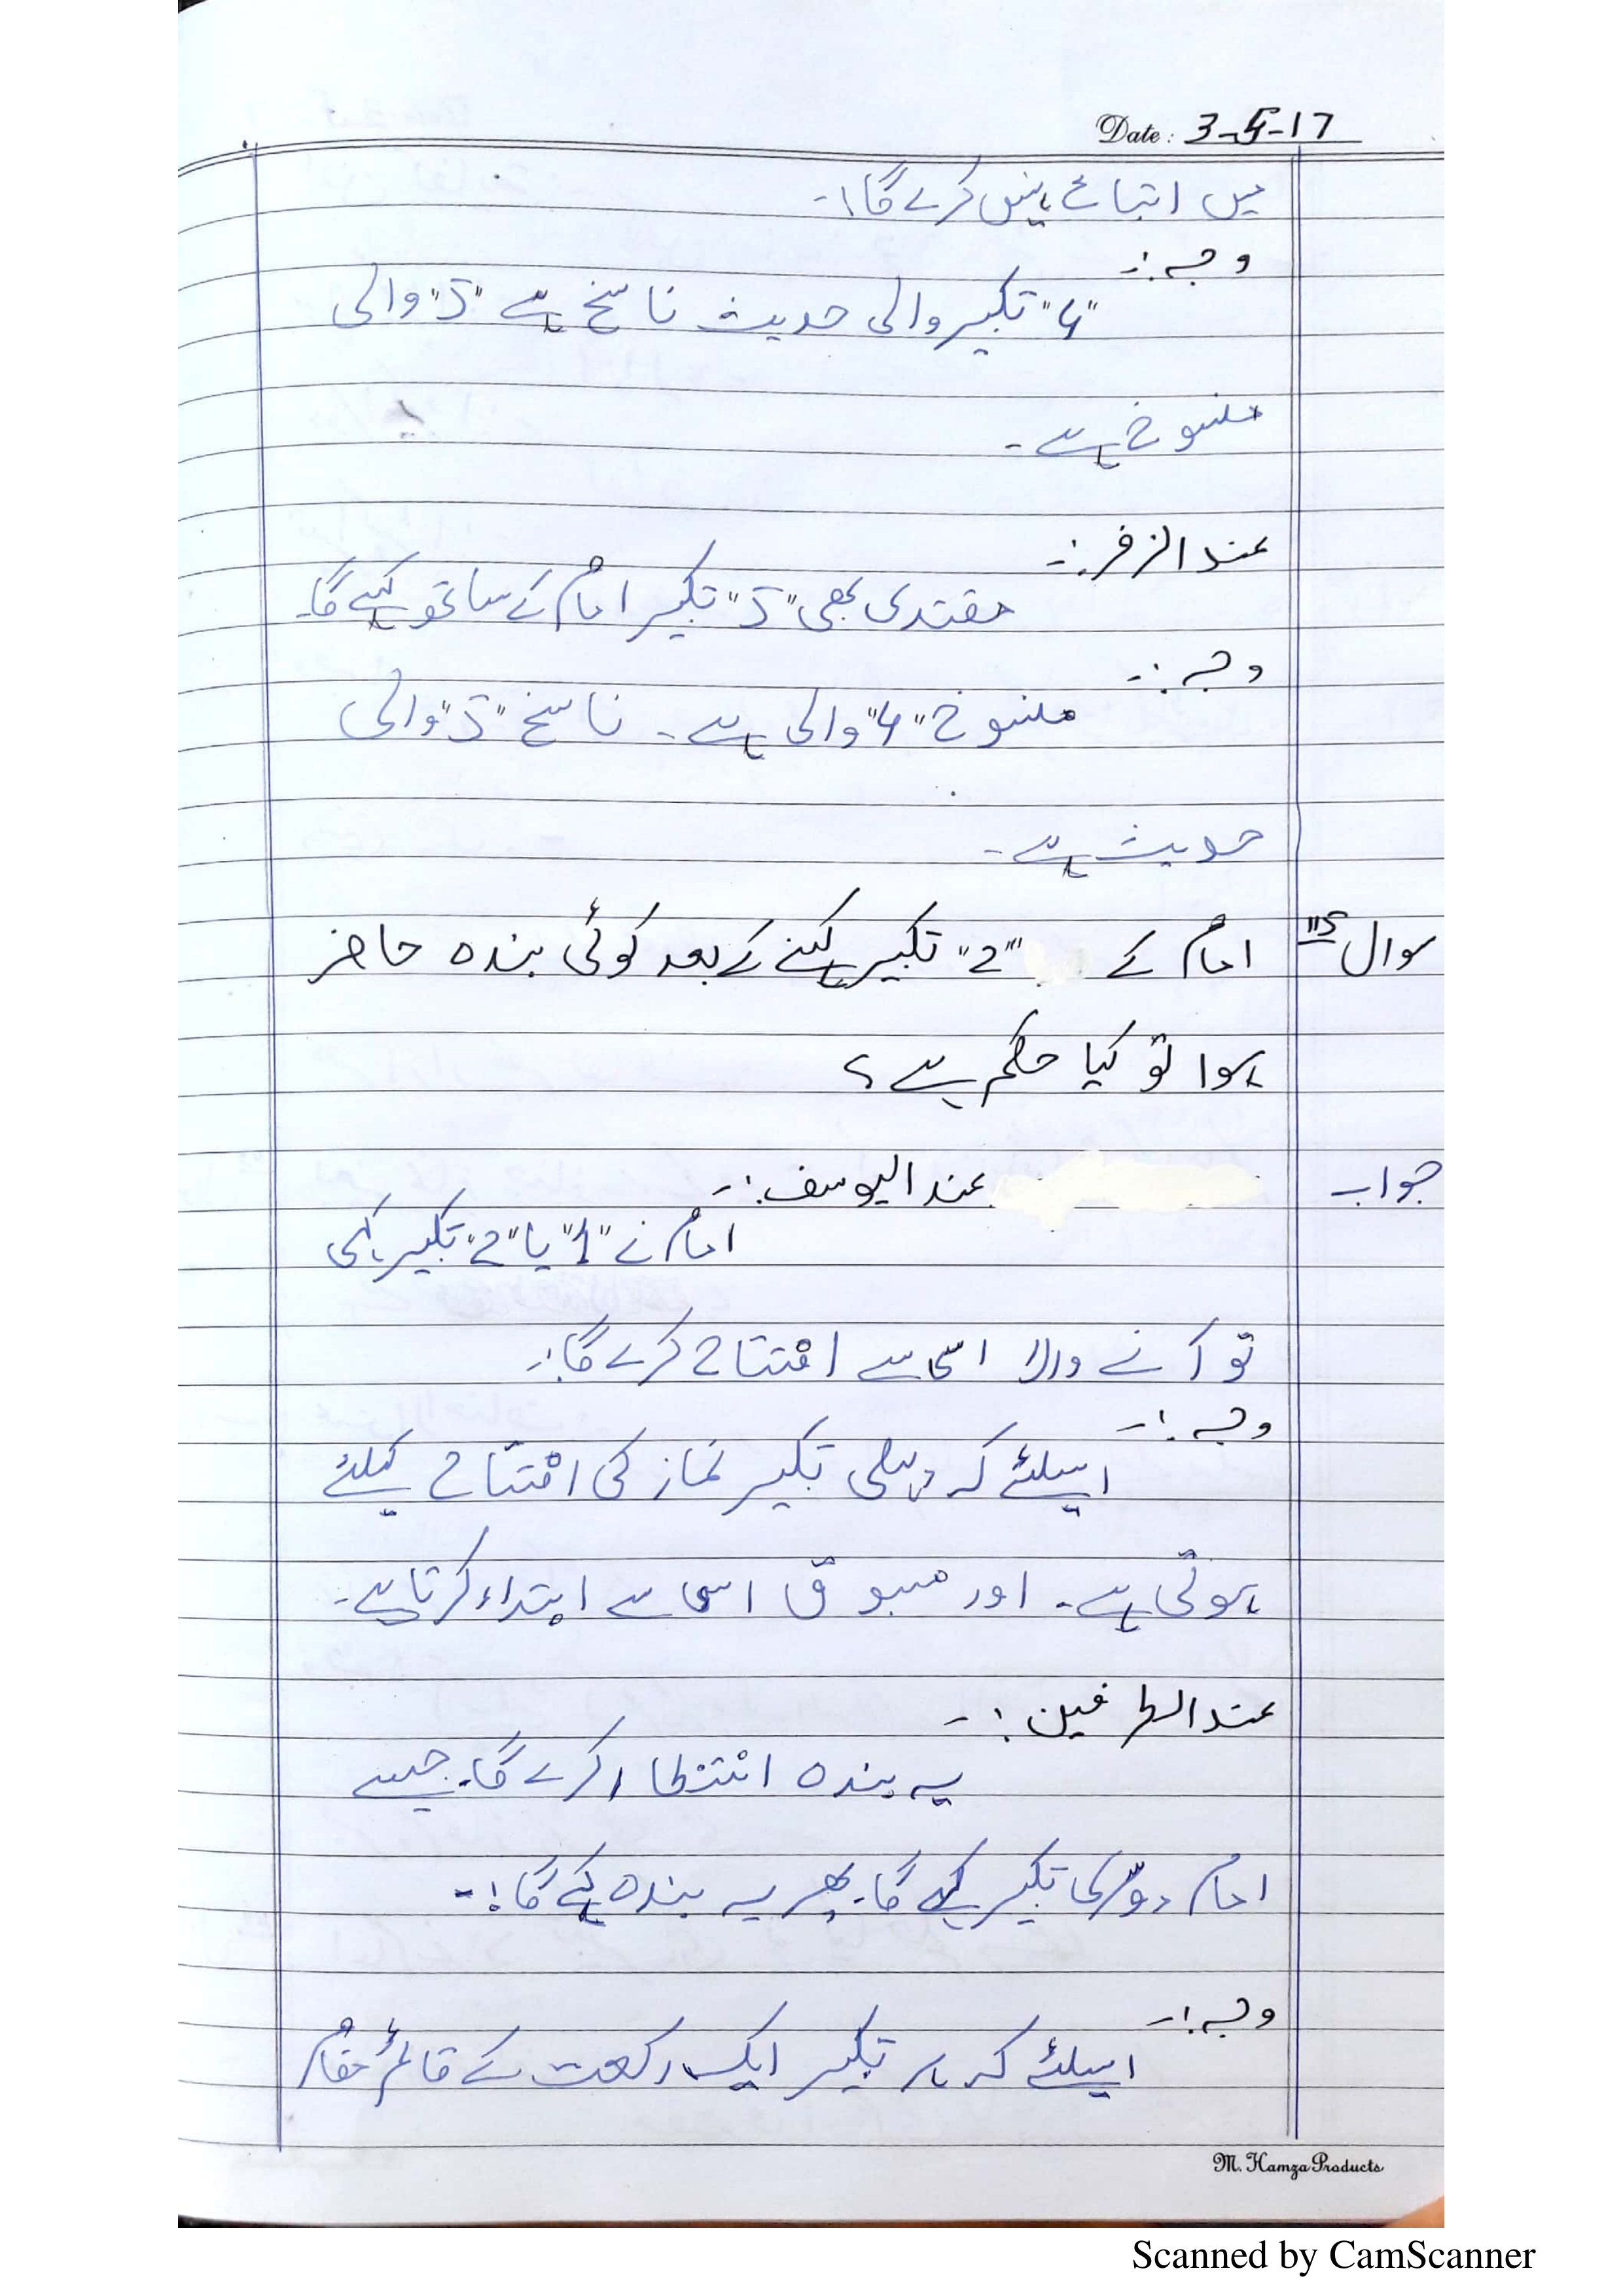 Date: 3-5-17
میں اتباع نہیں کرے گا۔
وجہ:-
"4" تکبیر والی حدیث ناسخ ہے "5" والی
منسوخ ہے۔
عند الزفر:-
مقتدی بھی "5" تکبیر امام کے ساتھ کہے گا۔
وجہ:-
منسوخ "4" والی ہے۔ ناسخ "5" والی
حدیث ہے۔
سوال "5" امام کے "2" تکبیر کہنے کے بعد کوئی بندہ حاضر
ہوا تو کیا حکم ہے؟
جواب عند الیوسف:-
امام نے "1" یا "2" تکبیر کہی
تو آنے والا اسی سے افتتاح کرے گا:-
وجہ:-
اسلئے کہ پہلی تکبیر نماز کی افتتاح کیلئے
ہوتی ہے۔ اور مسبوق اسی سے ابتداء کرتا ہے۔
عند الطرفین:-
یہ بندہ انتظار کرے گا۔ جیسے
امام دوسری تکبیر کہے گا۔ پھر یہ بندہ کہے گا:-
وجہ:-
اسلئے کہ ہر تکبیر ایک رکعت کے قائم مقام
M. Hamza Products
Scanned by CamScanner